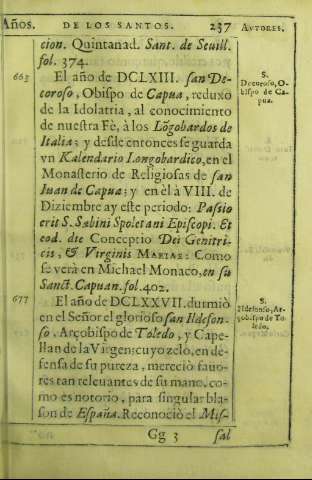 Años. DE LOS SANTOS. 237 AVTORES.
cion. Quintanad. Sant. de Seuill.
fol. 374.
663 El año de DCLXIII. san De-
coroso, Obispo de Capua, reduxo
de la Idolatria, al conocimiento
de nuestra Fè, à los Lōgobardos de
Italia; y desde entonces se guarda
vn Kalendario Longobardico, en el
Monasterio de Religiosas de san
Juan de Capua; y en èl à VIII. de
Diziembre ay este periodo: Passio
erit S. Sabini Spoletani Episcopi. Et
eod. die Conceptio Dei Genitri-
cis, & Virginis MARIAE: Como
se verà en Michael Monaco, en su
Sanct. Capuan. fol. 402.
S.
Decoroso, O-
bispo de Ca-
pua.
677 El año de DCLXXVII. durmiò
en el Señor el glorioso san Ildefon-
so, Arçobispo de Toledo, y Cape-
llan de la Virgen; cuyo zelo, en de-
fensa de su pureza, mereciò fauo-
res tan releuantes de su mano, co-
mo es notorio, para singular bla-
son de España. Reconociò el Mis-
S.
Ildefonso, Ar-
çobispo de To-
ledo.
Gg 3 sal